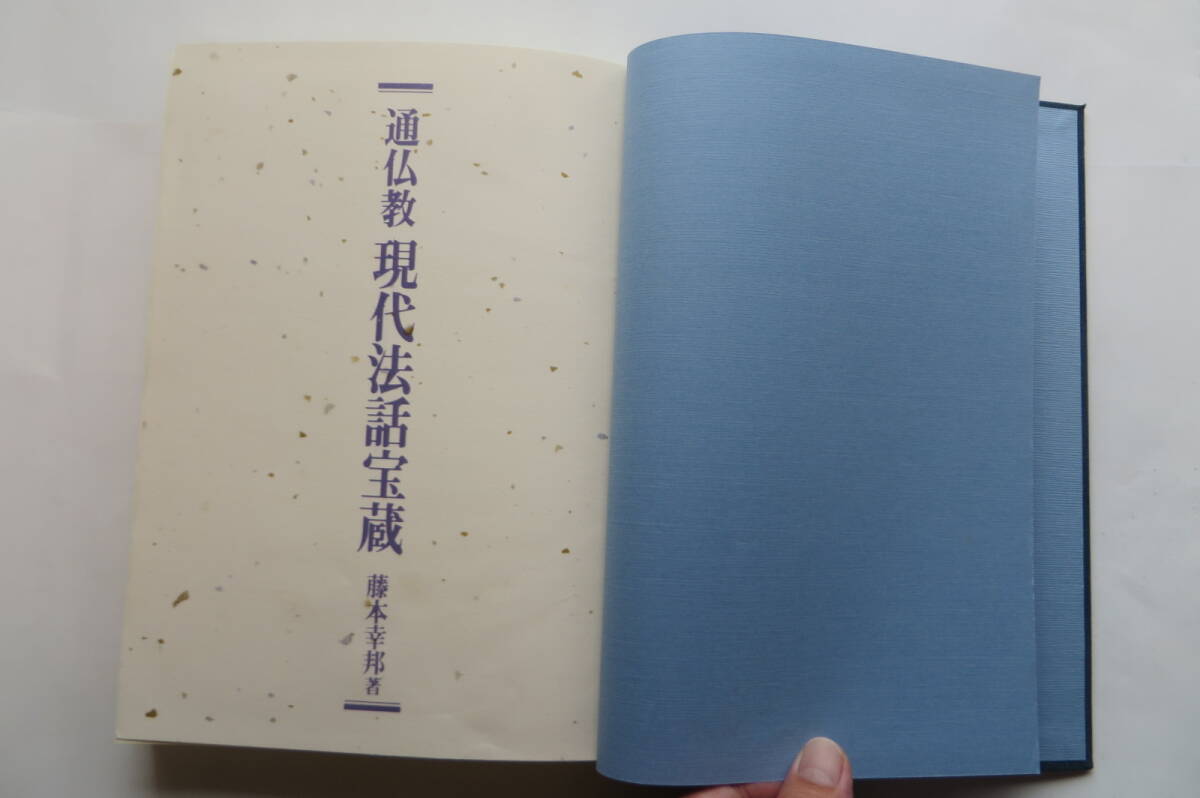 通仏教 現代法話宝蔵 藤本幸邦著